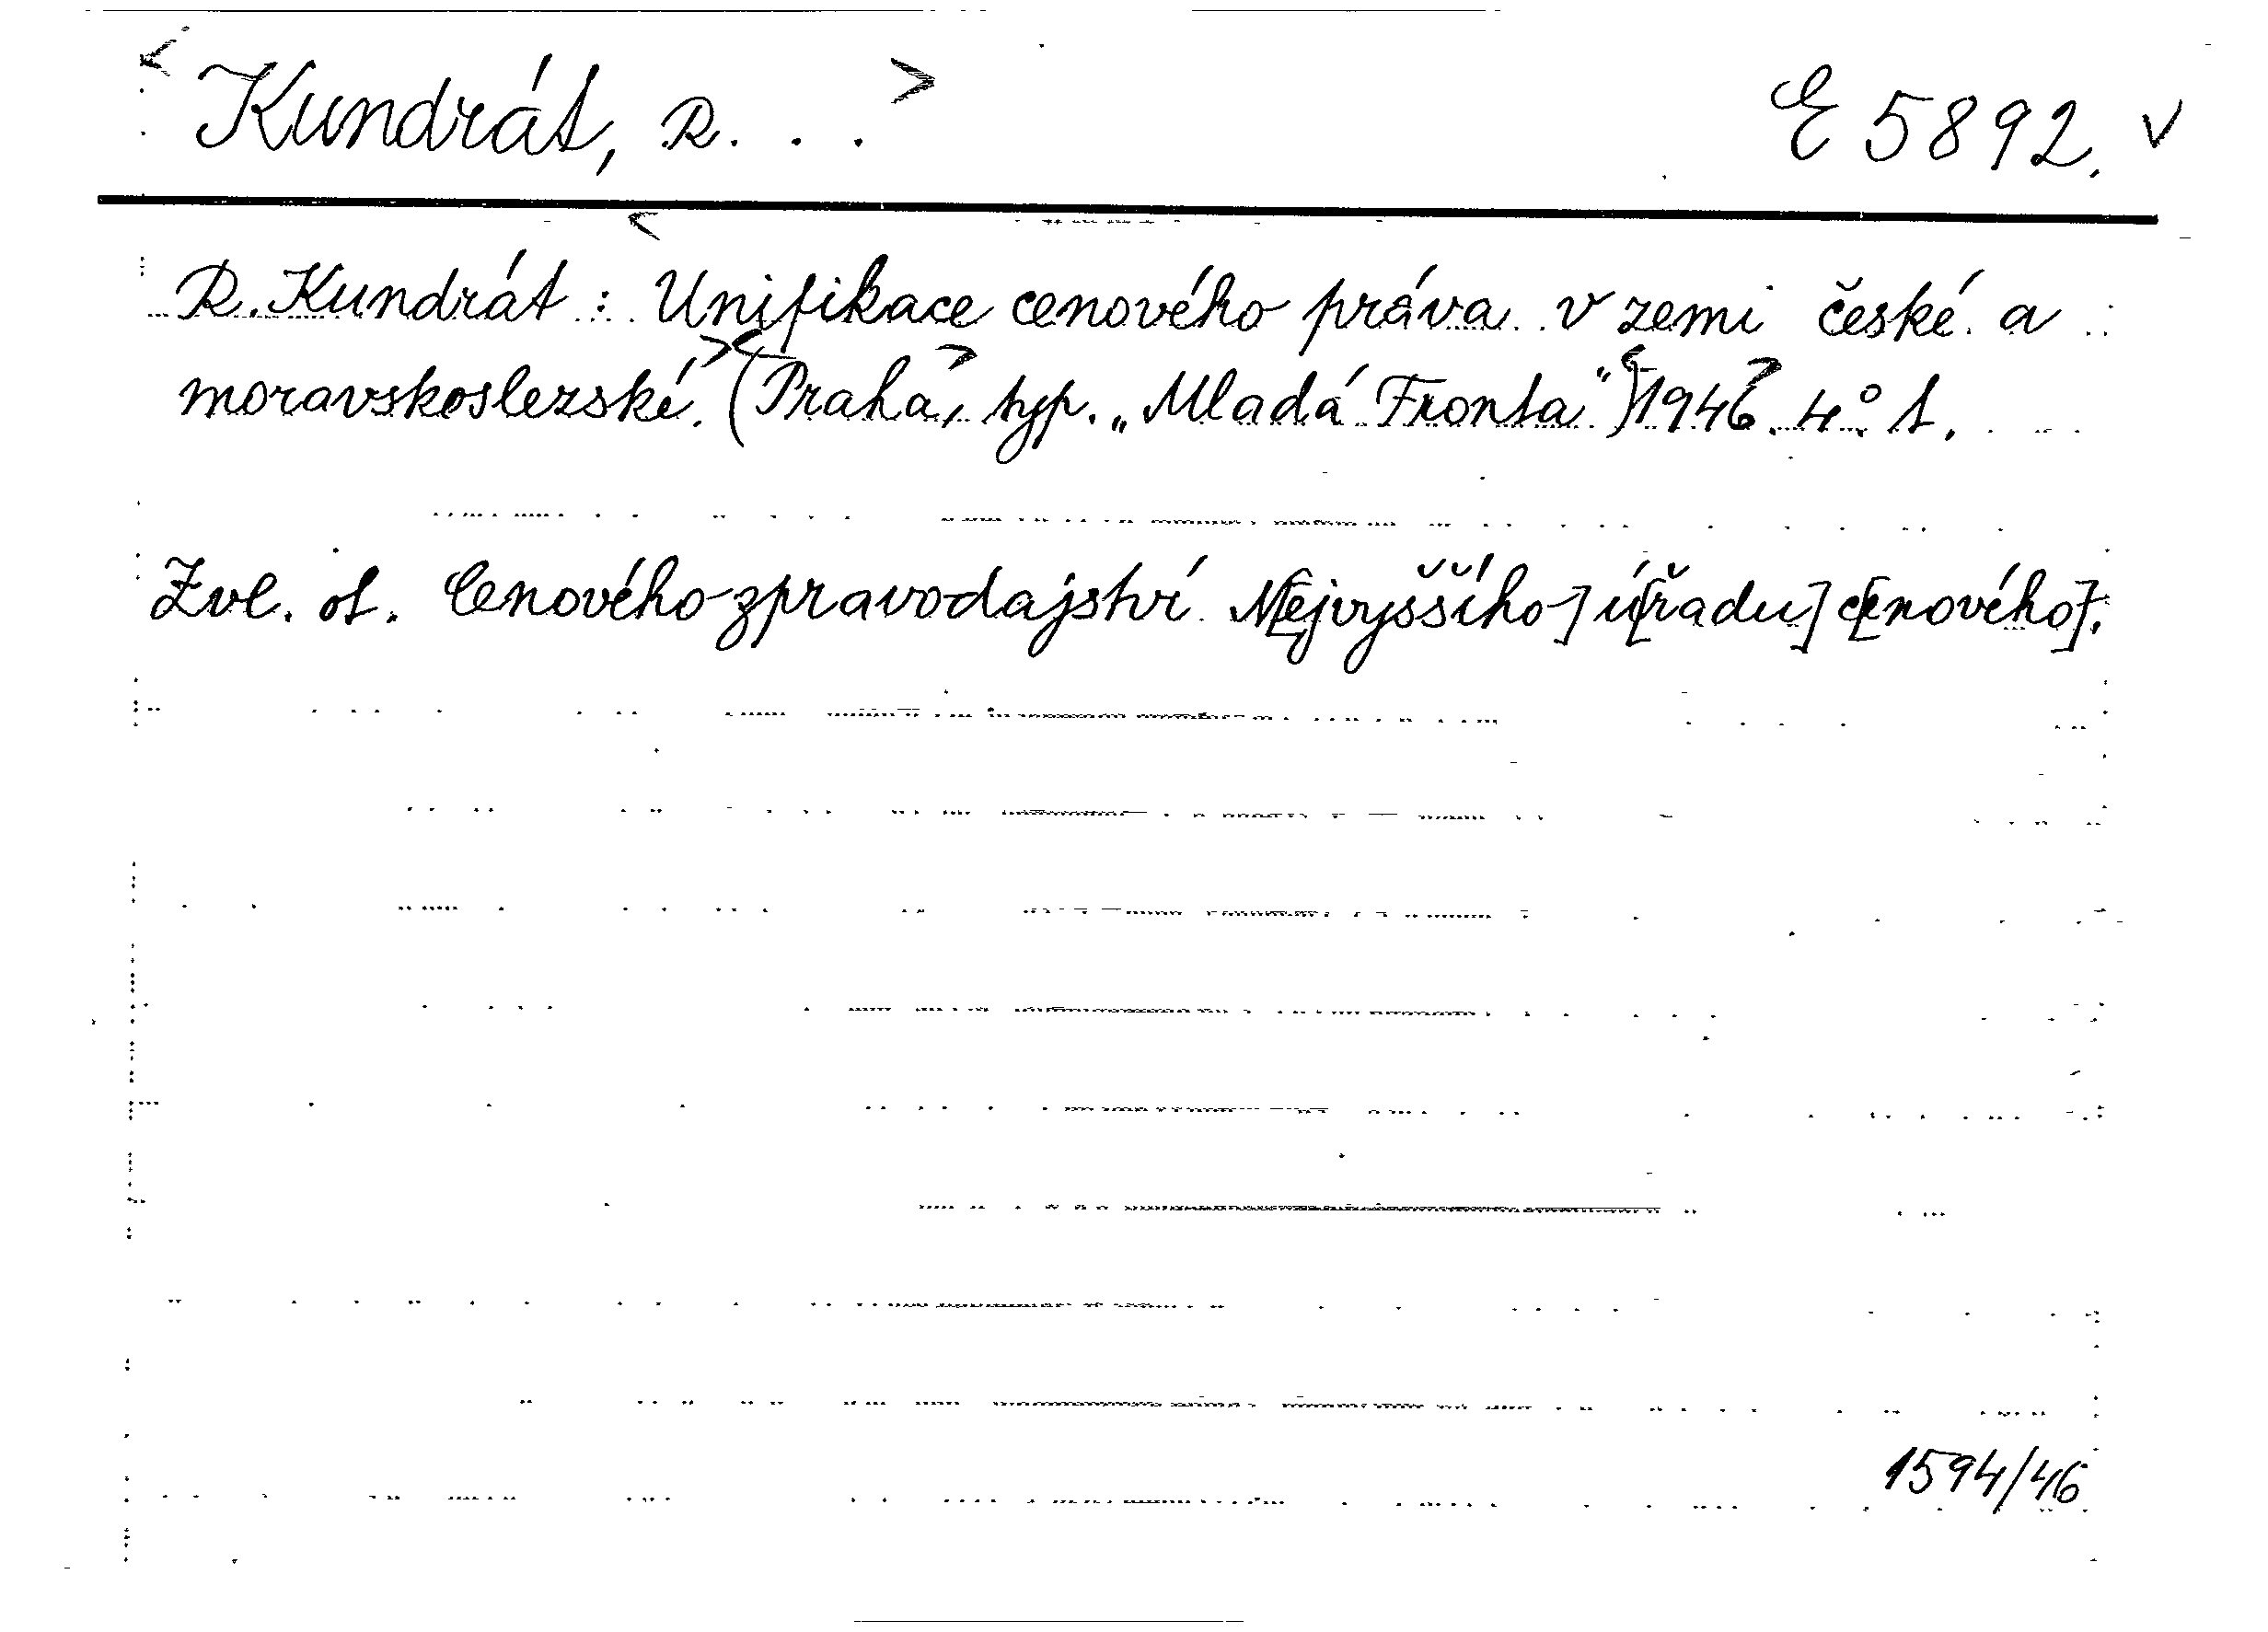 Kundrát, R. . . E 5892. v
R. Kundrát : Unifikace cenového práva v zemi české a
moravskoslezské. (Praha, typ. „Mladá Fronta“) 1946. 4°. 1.
Zvl. ot. Cenového zpravodajství N[ejvyššího] ú[řadu] c[enového].
1594/46